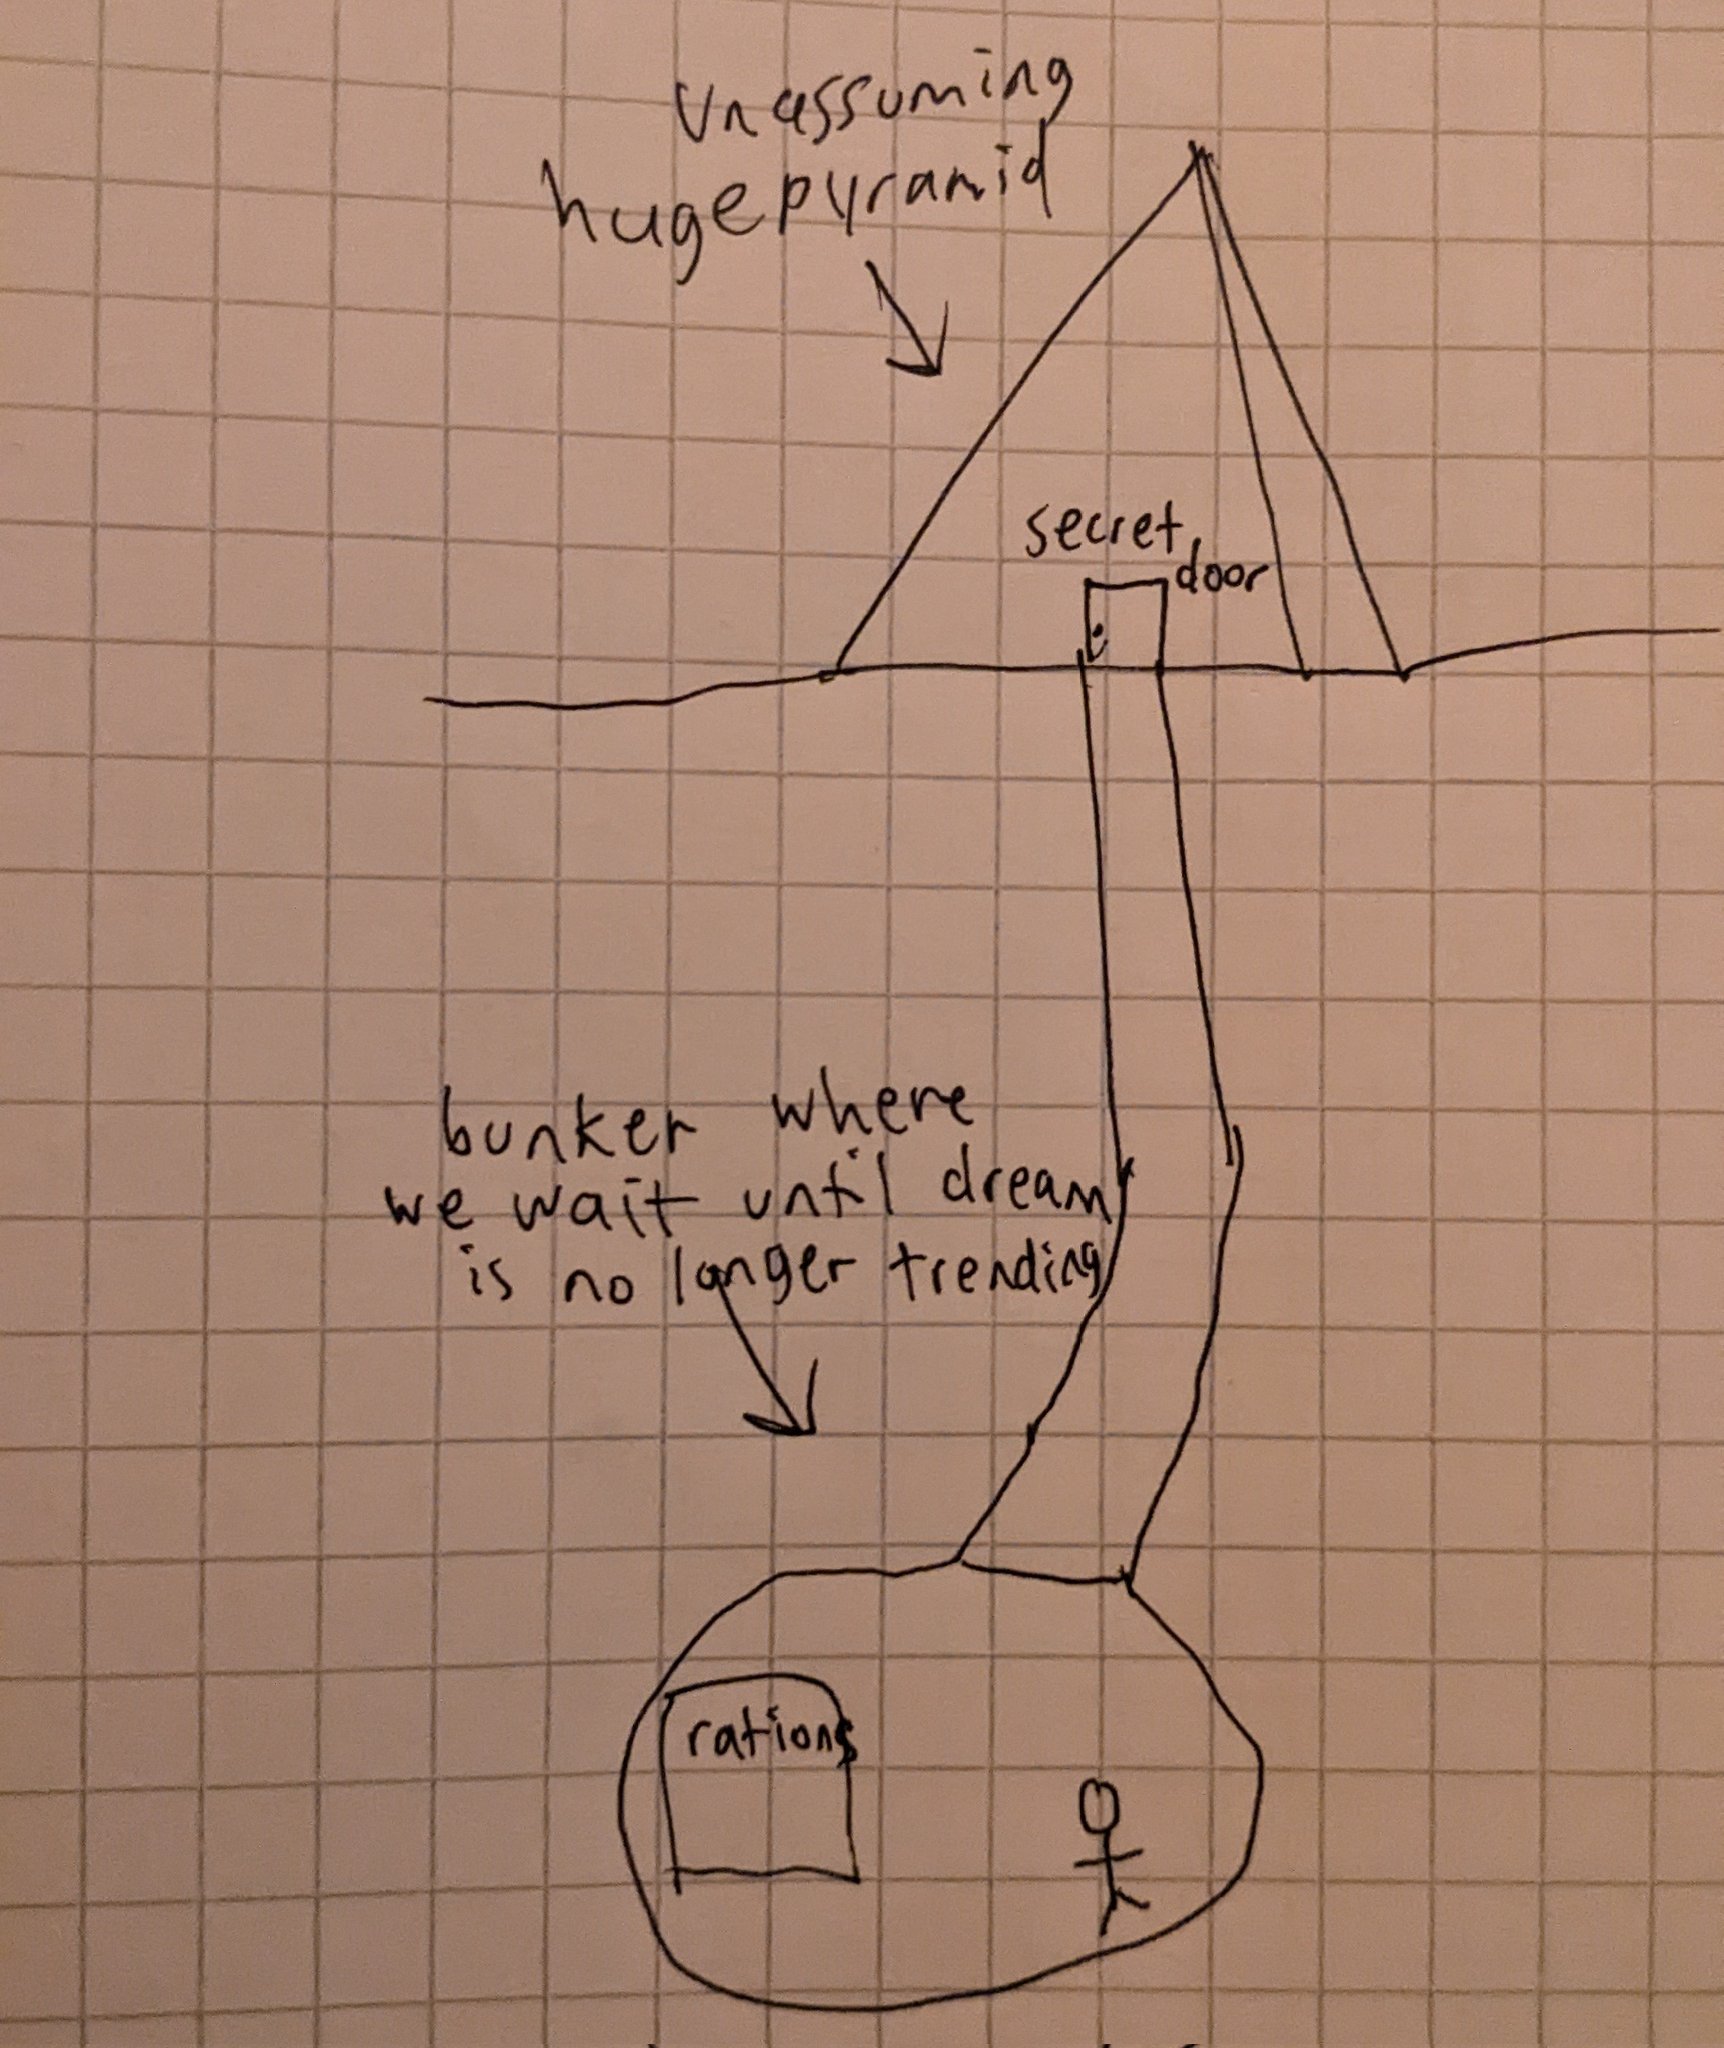 Unassuming
huge pyramid
secret
door
bunker where
we wait until dream
is no longer trending
rations